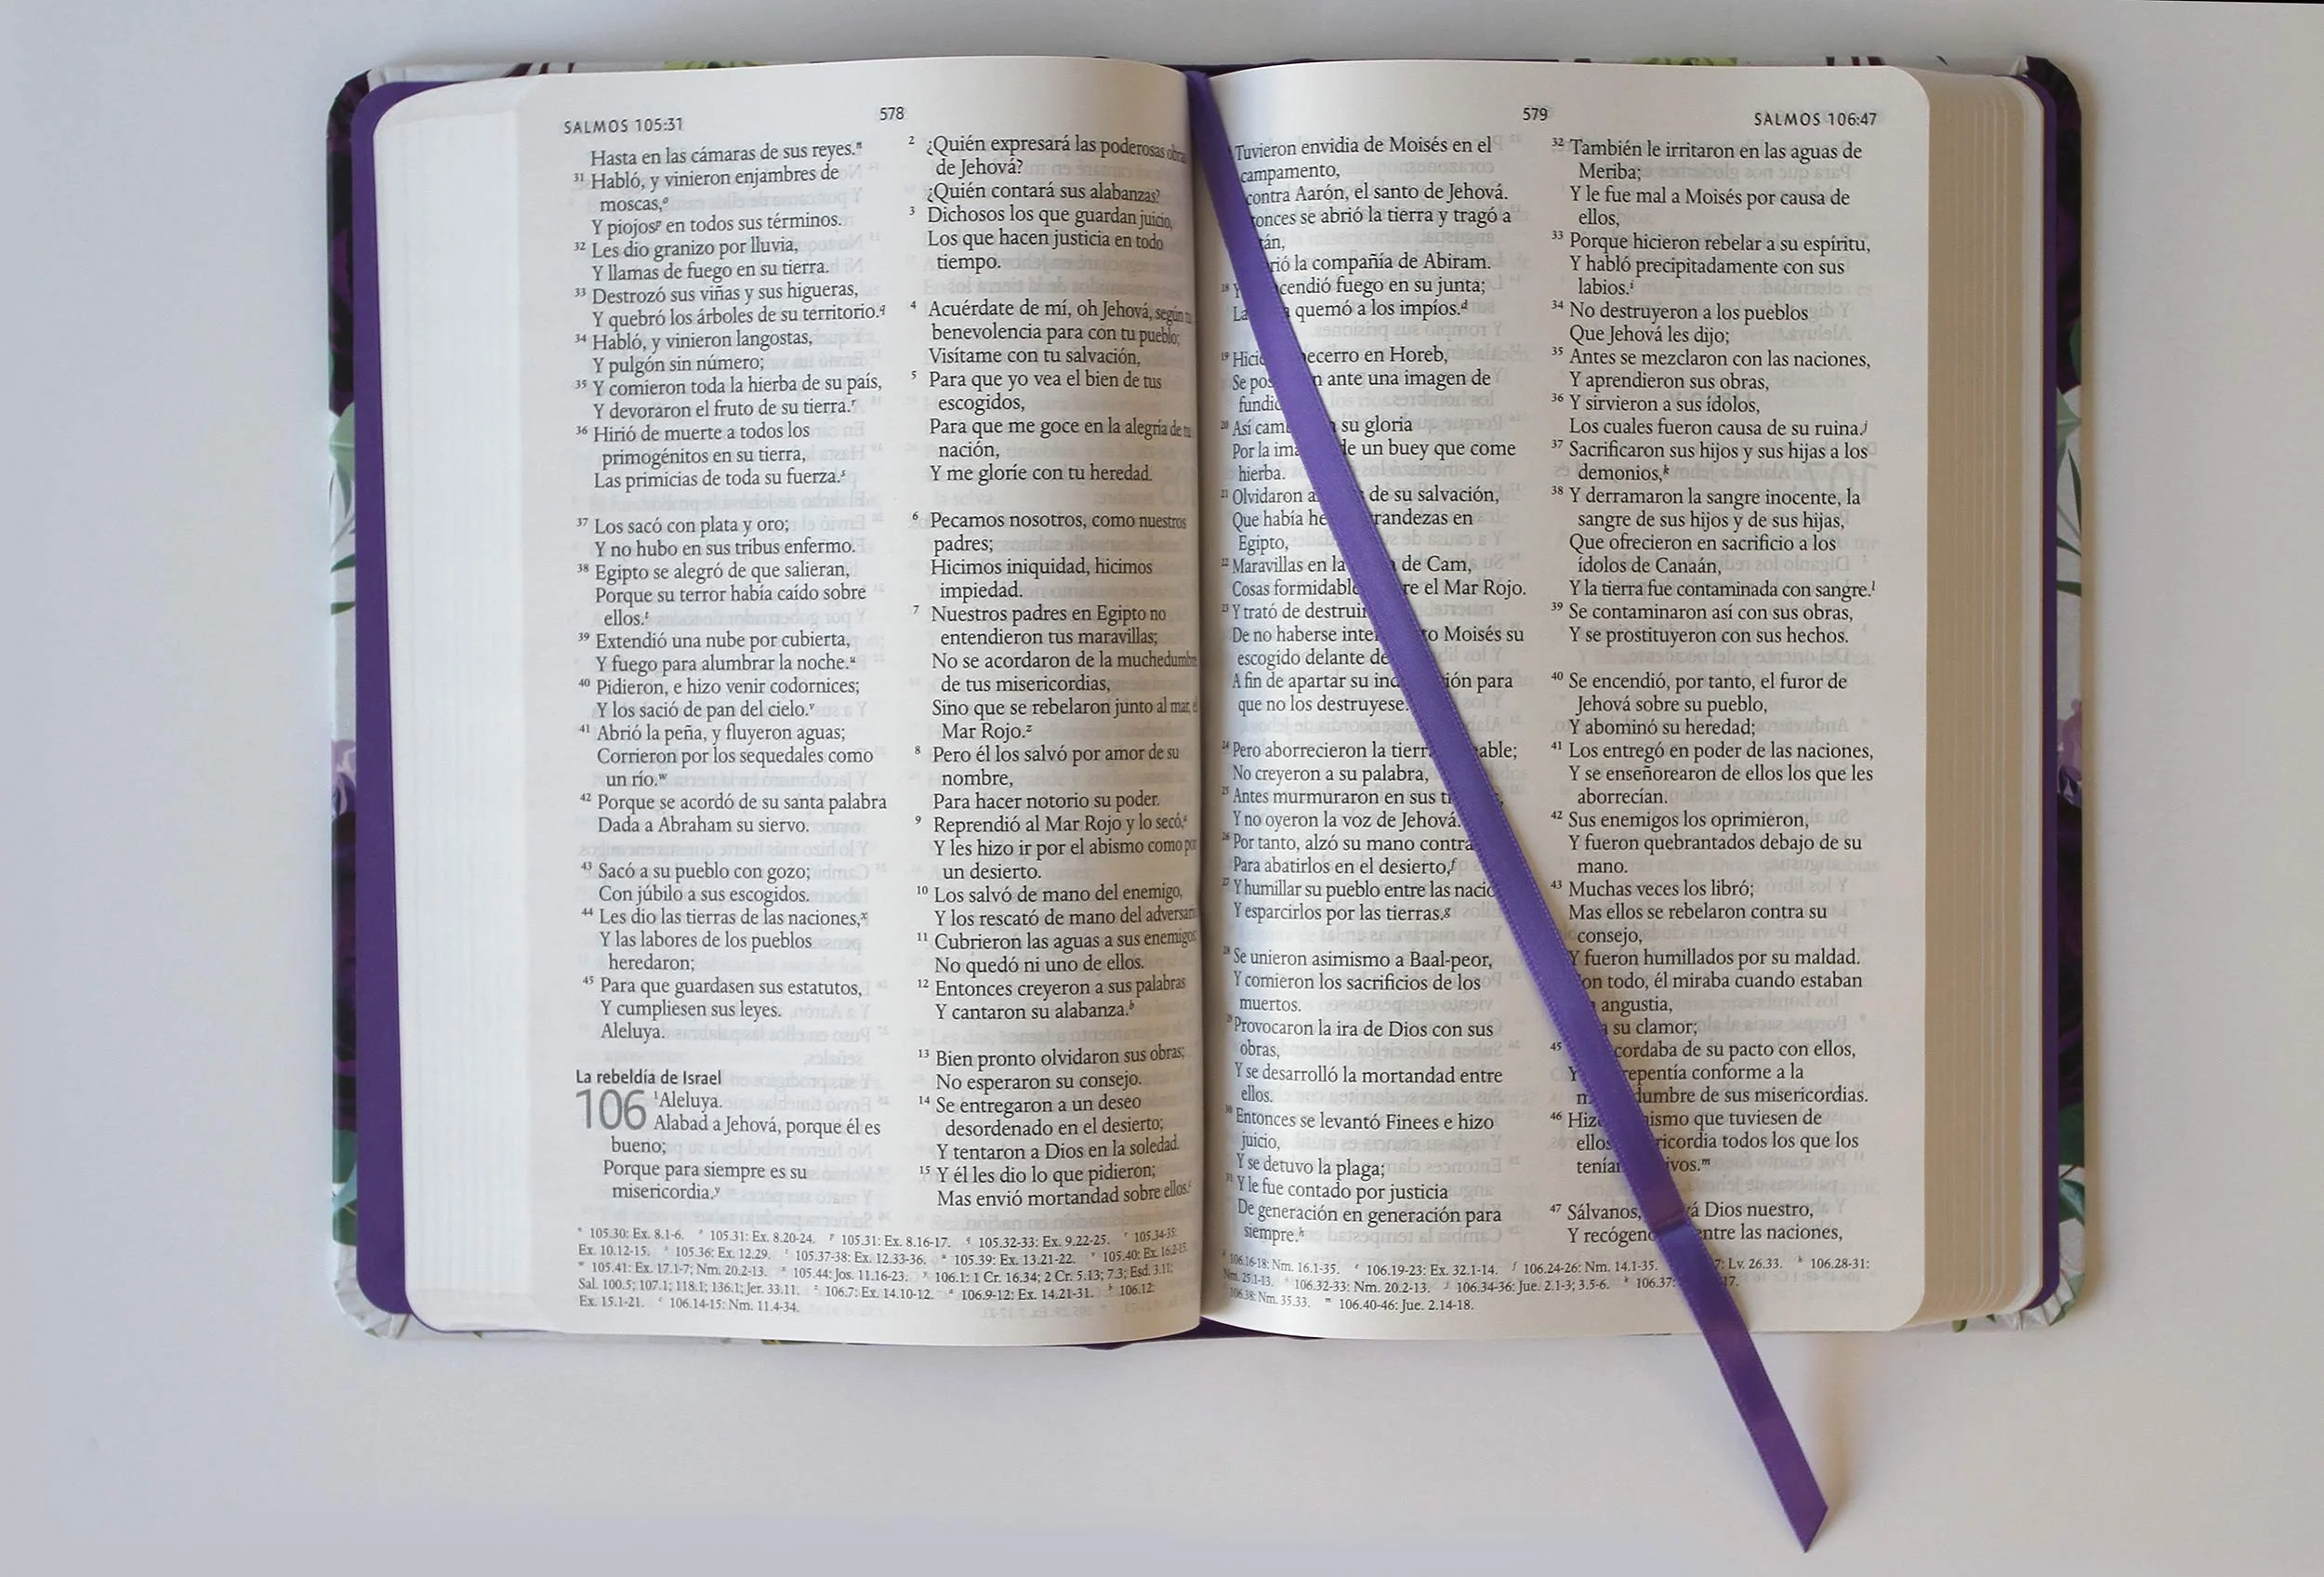 SALMOS 105:31
578
Hasta en las cámaras de sus reyes.ⁿ
31 Habló, y vinieron enjambres de
moscas,º
Y piojosᵖ en todos sus términos.
32 Les dio granizo por lluvia,
Y llamas de fuego en su tierra.
33 Destrozó sus viñas y sus higueras,
Y quebró los árboles de su territorio.q
34 Habló, y vinieron langostas,
Y pulgón sin número;
35 Y comieron toda la hierba de su país,
Y devoraron el fruto de su tierra.ʳ
36 Hirió de muerte a todos los
primogénitos en su tierra,
Las primicias de toda su fuerza.ˢ
37 Los sacó con plata y oro;
Y no hubo en sus tribus enfermo.
38 Egipto se alegró de que salieran,
Porque su terror había caído sobre
ellos.ᵗ
39 Extendió una nube por cubierta,
Y fuego para alumbrar la noche.ᵘ
40 Pidieron, e hizo venir codornices;
Y los sació de pan del cielo.ᵛ
41 Abrió la peña, y fluyeron aguas;
Corrieron por los sequedales como
un río.ʷ
42 Porque se acordó de su santa palabra
Dada a Abraham su siervo.
43 Sacó a su pueblo con gozo;
Con júbilo a sus escogidos.
44 Les dio las tierras de las naciones,ˣ
Y las labores de los pueblos
heredaron;
45 Para que guardasen sus estatutos,
Y cumpliesen sus leyes.
Aleluya.
La rebeldía de Israel
106 ¹Aleluya.
Alabad a Jehová, porque él es
bueno;
Porque para siempre es su
misericordia.ʸ
2 ¿Quién expresará las poderosas obras
de Jehová?
¿Quién contará sus alabanzas?
3 Dichosos los que guardan juicio,
Los que hacen justicia en todo
tiempo.
4 Acuérdate de mí, oh Jehová, según tu
benevolencia para con tu pueblo;
Visítame con tu salvación,
5 Para que yo vea el bien de tus
escogidos,
Para que me goce en la alegría de tu
nación,
Y me gloríe con tu heredad.
6 Pecamos nosotros, como nuestros
padres;
Hicimos iniquidad, hicimos
impiedad.
7 Nuestros padres en Egipto no
entendieron tus maravillas;
No se acordaron de la muchedumbre
de tus misericordias,
Sino que se rebelaron junto al mar, el
Mar Rojo.ᶻ
8 Pero él los salvó por amor de su
nombre,
Para hacer notorio su poder.
9 Reprendió al Mar Rojo y lo secó,ᵃ
Y les hizo ir por el abismo como por
un desierto.
10 Los salvó de mano del enemigo,
Y los rescató de mano del adversario
11 Cubrieron las aguas a sus enemigos;
No quedó ni uno de ellos.
12 Entonces creyeron a sus palabras
Y cantaron su alabanza.ᵇ
13 Bien pronto olvidaron sus obras;
No esperaron su consejo.
14 Se entregaron a un deseo
desordenado en el desierto;
Y tentaron a Dios en la soledad.
15 Y él les dio lo que pidieron;
Mas envió mortandad sobre ellos.ᶜ
ⁿ 105.30: Ex. 8.1-6. º 105.31: Ex. 8.20-24. ᵖ 105.31: Ex. 8.16-17. q 105.32-33: Ex. 9.22-25. ʳ 105.34-35:
Ex. 10.12-15. ˢ 105.36: Ex. 12.29. ᵗ 105.37-38: Ex. 12.33-36. ᵘ 105.39: Ex. 13.21-22. ᵛ 105.40: Ex. 16.2-15.
ʷ 105.41: Ex. 17.1-7; Nm. 20.2-13. ˣ 105.44: Jos. 11.16-23. ʸ 106.1: 1 Cr. 16.34; 2 Cr. 5.13; 7.3; Esd. 3.11;
Sal. 100.5; 107.1; 118.1; 136.1; Jer. 33.11. ᶻ 106.7: Ex. 14.10-12. ᵃ 106.9-12: Ex. 14.21-31. ᵇ 106.12:
Ex. 15.1-21. ᶜ 106.14-15: Nm. 11.4-34.
579
SALMOS 106:47
Tuvieron envidia de Moisés en el
campamento,
contra Aarón, el santo de Jehová.
se abrió la tierra y tragó a
la compañía de Abiram.
18 Y fuego en su junta;
La quemó a los impíos.ᵈ
19 becerro en Horeb,
Se ante una imagen de
20 Así su gloria
Por la de un buey que come
hierba.
21 Olvidaron de su salvación,
Que había grandezas en
Egipto,
22 Maravillas en la de Cam,
Cosas formidables el Mar Rojo.
23 Y trató de destruir
De no haberse Moisés su
escogido delante de
A fin de apartar su para
que no los destruyese.
24 Pero aborrecieron la tierra
No creyeron a su palabra,
25 Antes murmuraron en sus
Y no oyeron la voz de Jehová.
26 Por tanto, alzó su mano contra
Para abatirlos en el desierto,ᶠ
27 Y humillar su pueblo entre las
Y esparcirlos por las tierras.ᵍ
28 Se unieron asimismo a Baal-peor,
Y comieron los sacrificios de los
muertos.
29 Provocaron la ira de Dios con sus
obras,
Y se desarrolló la mortandad entre
ellos.
30 Entonces se levantó Finees e hizo
juicio,
Y se detuvo la plaga;
31 Y le fue contado por justicia
De generación en generación para
siempre.ʰ
32 También le irritaron en las aguas de
Meriba;
Y le fue mal a Moisés por causa de
ellos,
33 Porque hicieron rebelar a su espíritu,
Y habló precipitadamente con sus
labios.ⁱ
34 No destruyeron a los pueblos
Que Jehová les dijo;
35 Antes se mezclaron con las naciones,
Y aprendieron sus obras,
36 Y sirvieron a sus ídolos,
Los cuales fueron causa de su ruina.ʲ
37 Sacrificaron sus hijos y sus hijas a los
demonios,ᵏ
38 Y derramaron la sangre inocente, la
sangre de sus hijos y de sus hijas,
Que ofrecieron en sacrificio a los
ídolos de Canaán,
Y la tierra fue contaminada con sangre.ˡ
39 Se contaminaron así con sus obras,
Y se prostituyeron con sus hechos.
40 Se encendió, por tanto, el furor de
Jehová sobre su pueblo,
Y abominó su heredad;
41 Los entregó en poder de las naciones,
Y se enseñorearon de ellos los que les
aborrecían.
42 Sus enemigos los oprimieron,
Y fueron quebrantados debajo de su
mano.
43 Muchas veces los libró;
Mas ellos se rebelaron contra su
consejo,
Y fueron humillados por su maldad.
todo, él miraba cuando estaban
angustia,
su clamor;
45 de su pacto con ellos,
Y conforme a la
de sus misericordias.
46 que tuviesen de
todos los que los
47 Sálvanos, Dios nuestro,
Y entre las naciones,
106.16-18: Nm. 16.1-35. ᵉ 106.19-23: Ex. 32.1-14. ᶠ 106.24-26: Nm. 14.1-35. Lv. 26.33. ʰ 106.28-31:
Nm. 25.1-13. ⁱ 106.32-33: Nm. 20.2-13. ʲ 106.34-36: Jue. 2.1-3; 3.5-6. ᵏ 106.37:
106.38: Nm. 35.33. ᵐ 106.40-46: Jue. 2.14-18.